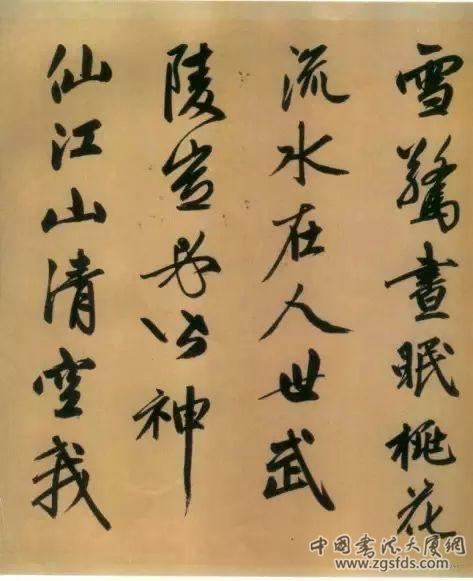 雪驚晝眠桃花
流水在人世武
陵豈必皆神
仙江山清空我
中國書法大厦網
www.zgsfds.com